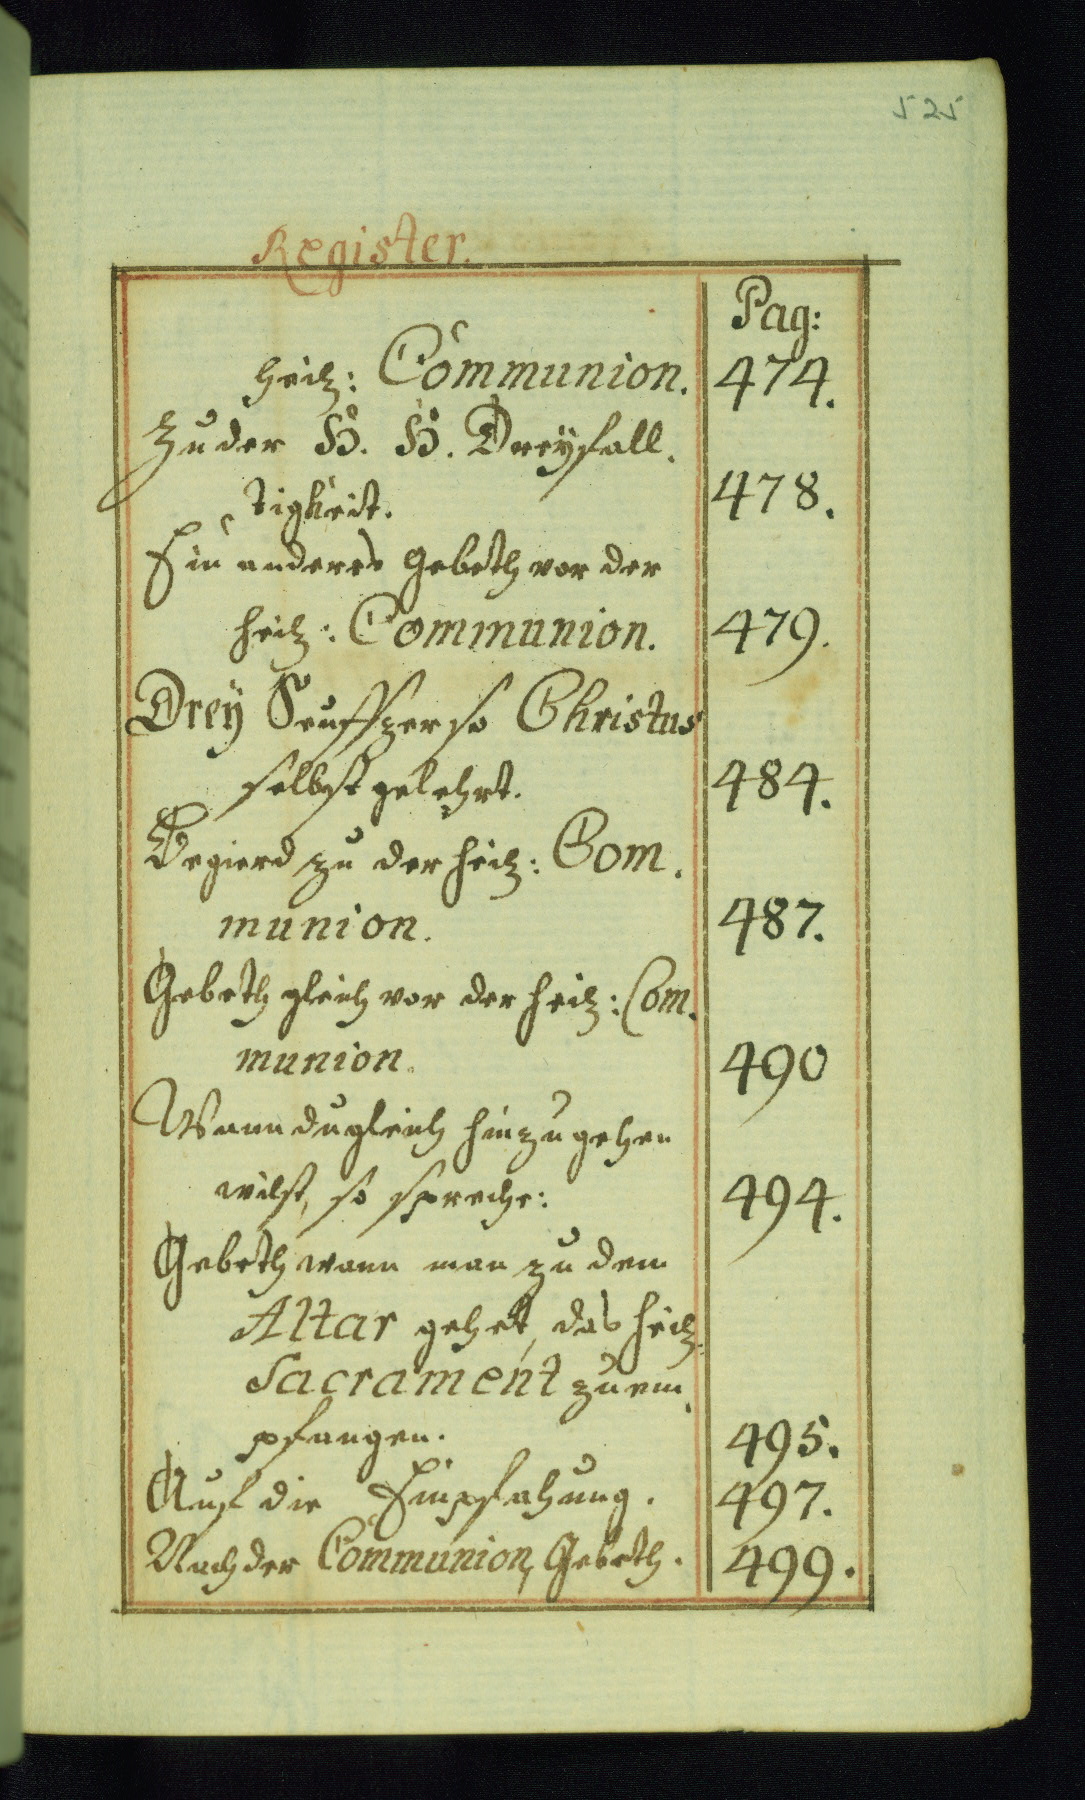 525
Register.
Pag:
heilg: Communion. 474.
Zu der H. H. Dreÿfall.
tigkeit. 478.
Ein anderes Gebeth vor der
heilg: Communion. 479.
Dreÿ Seuffzer so Christus
selbst gelehrt. 484.
Begierd zu der heilg: Com.
munion. 487.
Gebeth gleich vor der heilg: Com.
munion. 490
Wann du gleich hinzu gehen
wilst, so spreche: 494.
Gebeth wann man zu dem
Altar gehet, das heilg:
Sacrament zu em.
pfangen. 495.
Auf die Empfahung. 497.
Nach der Communion, Gebeth. 499.